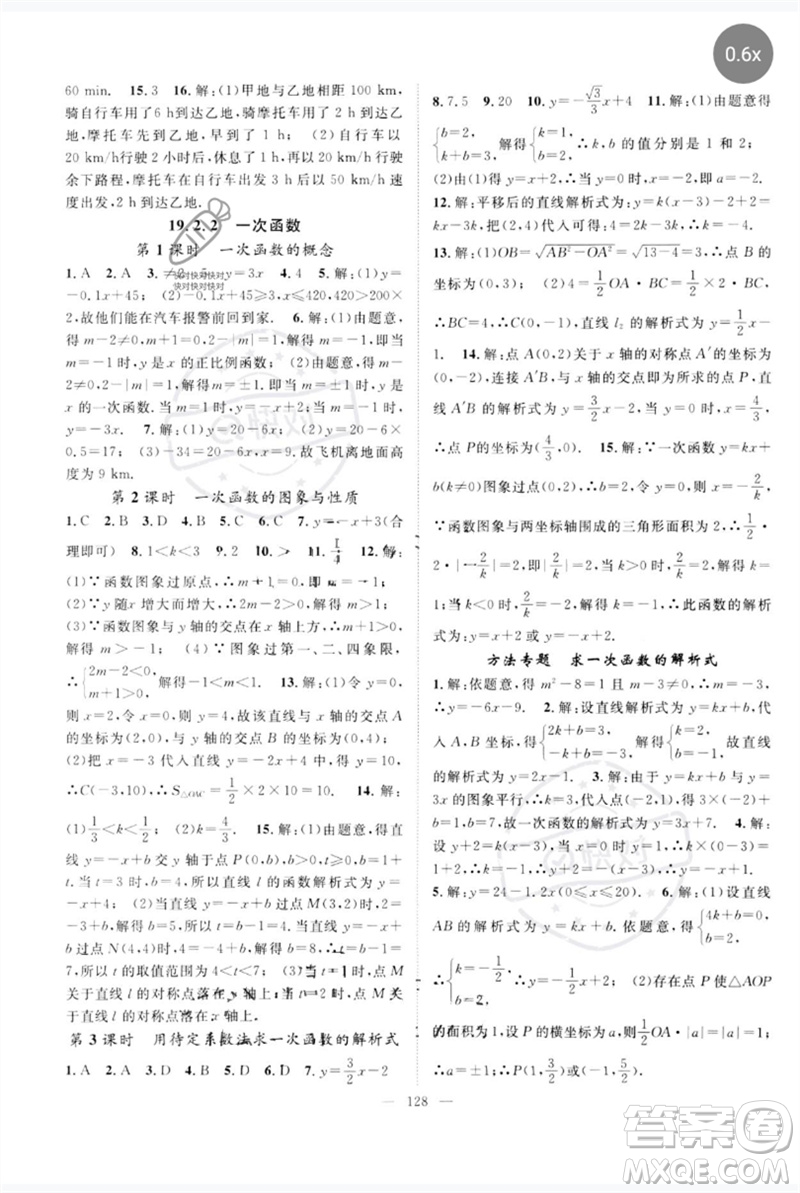 0.6x
60 min. 15.3 16.解:(1)甲地与乙地相距 100 km,
骑自行车用了 6 h到达乙地,骑摩托车用了 2 h到达
乙地,摩托车先到乙地,早到了 1 h; (2)自行车以
20 km/h行驶 2 小时后,休息了 1 h后再以原速走完
余下路程,摩托车在自行车出发 3 h后以 50 km/h速
度出发,2 h到达乙地.
19.2.2 一次函数
第 1 课时 一次函数的概念
1.A 2.A 3.≠0 y=3x 4.4 5.解:(1)y=
-0.1x+45; (2)-0.1x+45≥3,x≤420,420>200×
2,故他们能在汽车报警前回到家. 6.解:(1)由题意,
得m-1≠0,2-|m|=1,解得m=-1.当m=-1时,
y是x的正比例函数; (2)由题意,得m-1≠0,
2-|m|=1,解得m=-1,故当m=-1时,y是
x的一次函数.当m=1时,y=-x;当m=-1时,
y=-3x. 7.解:(1)y=20-6x; (2)y=20-6×
0.5=17; (3)-34=20-6x,x=9.故飞机离地面高
度为 9 km.
第 2 课时 一次函数的图象与性质
1.C 2.B 3.D 4.A 5.D 6.D 7.y=-x+3(合
理即可) 8.1<k<3 9.2 10.> > 11. 12.解:
(1)∵函数图象过原点,∴m-1=0,∴m=1;
(2)∵y随x增大而增大,∴2m-2>0,∴m>1;
(3)∵函数图象与y轴交点在x轴上方,∴m+1>0,
解得m>-1; (4)∵图象过第一、二、四象限,
∴{2m-2<0, m+1>0, 解得-1<m<1. 13.解:(1)令y=0,
则x=2;令x=0,y=4,故该直线与x轴的交点A
的坐标为(2,0),与y轴的交点B的坐标为(0,4);
(2)把x=-3代入直线y=-2x+4,得y=10,
∴C(-3,10),∴S△OAC=1/2×2×10=10. 14.解:
(1)1/3<k<1/2; (2)k=1/2. 15.解:(1)由题意,得直
线y=-x+b交y轴于点P(0,b),b>0,t≥0,b=2+t.
当t=3时,b=5,所以直线l的函数解析式为y=
-x+5; (2)当直线y=-x+b过点M(3,2)时,2=
-3+b,解得b=5,所以t=3.当直线y=-x+b
过点N(4,4)时,4=-4+b,解得b=8,∴t=
7,所以t的取值范围为4<t<7; (3)当t=1时,点M
关于直线l的对称点落在y轴上;当t=2时,点M
关于直线l的对称点落在x轴上.
第 3 课时 用待定系数法求一次函数的解析式
1.A 2.D 3.A 4.D 5.A 6.-1 7.y=3/2x-2
8.7.5 9.20 10.y=-√3/3x+4 11.解:(1)由题意得
{b=2, k+b=3, 解得{k=1, b=2, ∴k,b的值分别是 1 和 2;
(2)由(1)得y=x+2,∴当y=0时,x=-2,即a=-2.
12.解:平移后的直线解析式为y=k(x-2)-2+4=
kx-2k+2,把(6,2)代入可得:k=1/2.
13.解:(1)OB=√AB²-OA²=√13-4=3,∴点B的
坐标为(0,3); (2)4=1/2OA·BC=1/2×2·BC,
∴BC=4,∴C(0,-1),直线l₂的解析式为y=1/2x-
1. 14.解:点A(0,2)关于x轴的对称点A′的坐标为
(0,-2),连接A′B,与x轴的交点即为所求的点P,直
线A′B的解析式为y=3/2x-2,令y=0,得x=4/3,
∴点P的坐标为(4/3,0). 15.解:∵一次函数y=kx+
b(k≠0)图象过点(0,2),∴b=2.令y=0,则x=-2/k,
∵函数图象与两坐标轴围成的三角形面积为2,∴1/2×2
·|-2/k|=2,即|2/k|=2,当k>0时,2/k=2,解得k
=1;当k<0时,-2/k=2,解得k=-1,∴此函数的解析
式为:y=x+2或y=-x+2.
方法专题 求一次函数的解析式
1.解:依题意,得m²-8=1且m-3≠0,∴m=-3,
∴y=-6x-9. 2.解:设直线解析式为y=kx+b,代
入A,B坐标,得{2k+b=3, -k+b=-3, 解得{k=2, b=-1, 故直线
的解析式为y=2x-1. 3.解:由于函数图象与y=3x
的图象平行,∴k=3,代入点得3×(-2)+b=1,
b=7,故一次函数解析式为y=3x+7. 4.解:
设这条直线的解析式为y=
5.解:y=24-2x(0≤x≤6). 6.解:(1)设直线
AB的解析式为y=kx+b.依题意,得{4k+b=0, b=2,
∴{k=-1/2, b=2, ∴y=-1/2x+2; (2)存在点P使△AOP
的面积为1,设P的横坐标为a,∴1/2OA·|a|=1,∴|a|=1,
∴a=±1;∴P(1,3/2)或(-1,5/2).
128
答案圈
MXQE.COM